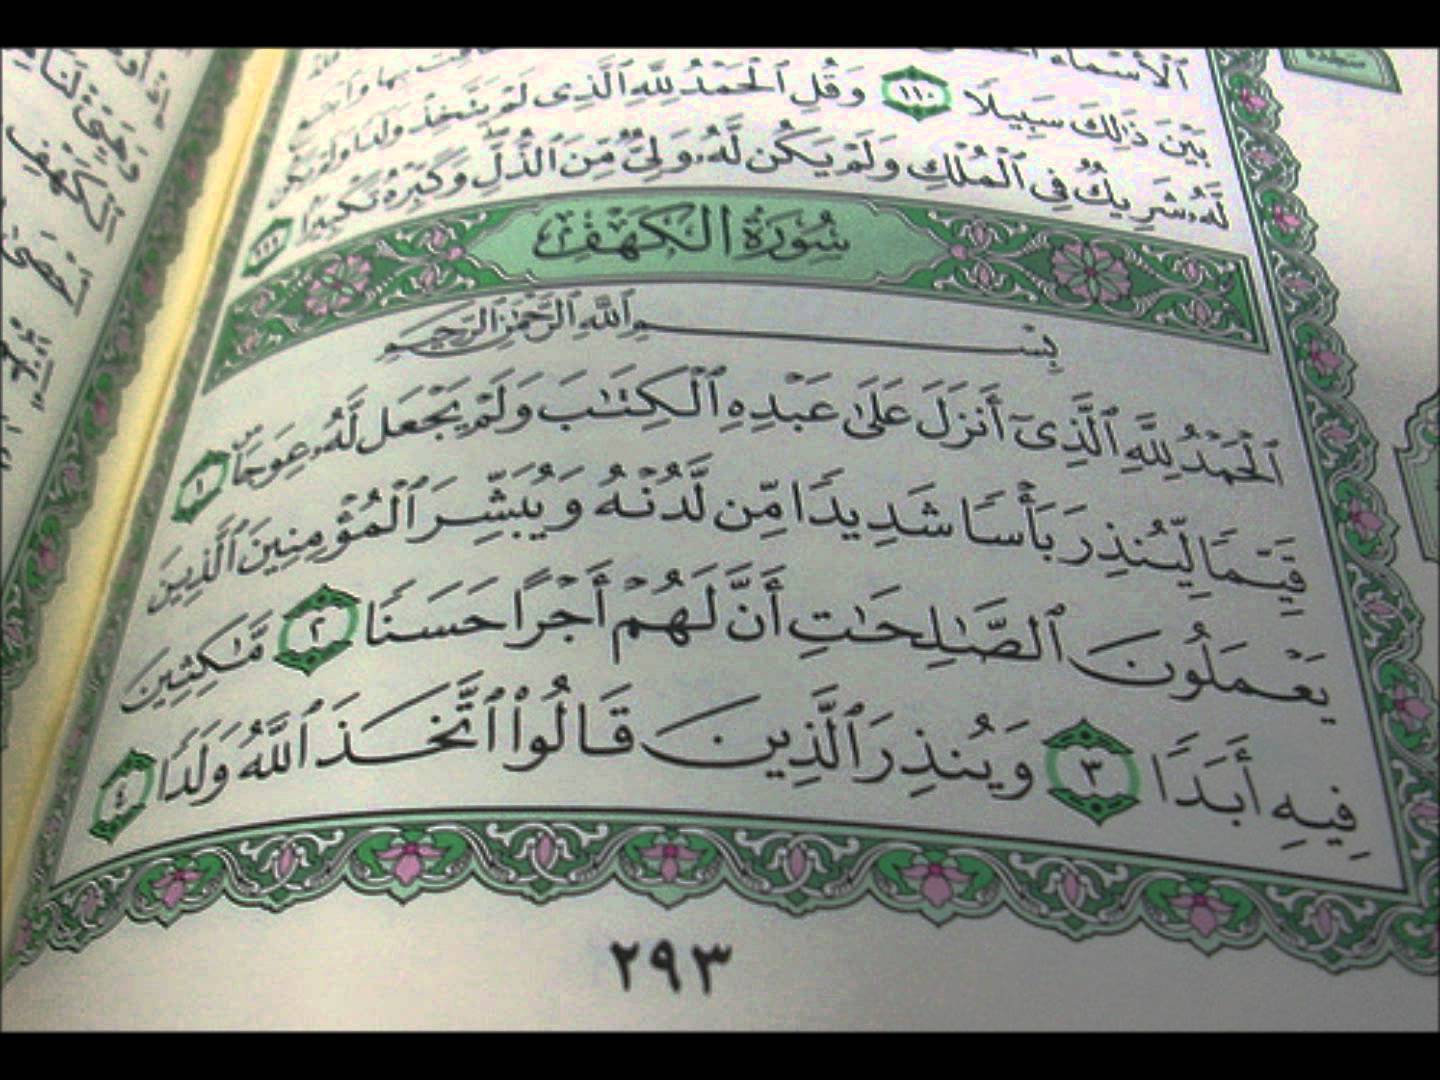 ٱلْأَسْمَآءُ
سجدة
بَيْنَ ذَٰلِكَ سَبِيلًا ١١٠ وَقُلِ ٱلْحَمْدُ لِلَّهِ ٱلَّذِى لَمْ يَتَّخِذْ وَلَدًا وَلَمْ يَكُن
لَّهُۥ شَرِيكٌ فِى ٱلْمُلْكِ وَلَمْ يَكُن لَّهُۥ وَلِىٌّ مِّنَ ٱلذُّلِّ وَكَبِّرْهُ تَكْبِيرًۢا ١١١
سُورَةُ الكَهْفِ
بِسْمِ ٱللَّهِ ٱلرَّحْمَٰنِ ٱلرَّحِيمِ
ٱلْحَمْدُ لِلَّهِ ٱلَّذِىٓ أَنزَلَ عَلَىٰ عَبْدِهِ ٱلْكِتَٰبَ وَلَمْ يَجْعَل لَّهُۥ عِوَجَاۜ ١
قَيِّمًا لِّيُنذِرَ بَأْسًا شَدِيدًا مِّن لَّدُنْهُ وَيُبَشِّرَ ٱلْمُؤْمِنِينَ ٱلَّذِينَ
يَعْمَلُونَ ٱلصَّٰلِحَٰتِ أَنَّ لَهُمْ أَجْرًا حَسَنًا ٢ مَّٰكِثِينَ
فِيهِ أَبَدًا ٣ وَيُنذِرَ ٱلَّذِينَ قَالُوا۟ ٱتَّخَذَ ٱللَّهُ وَلَدًا ٤
٢٩٣